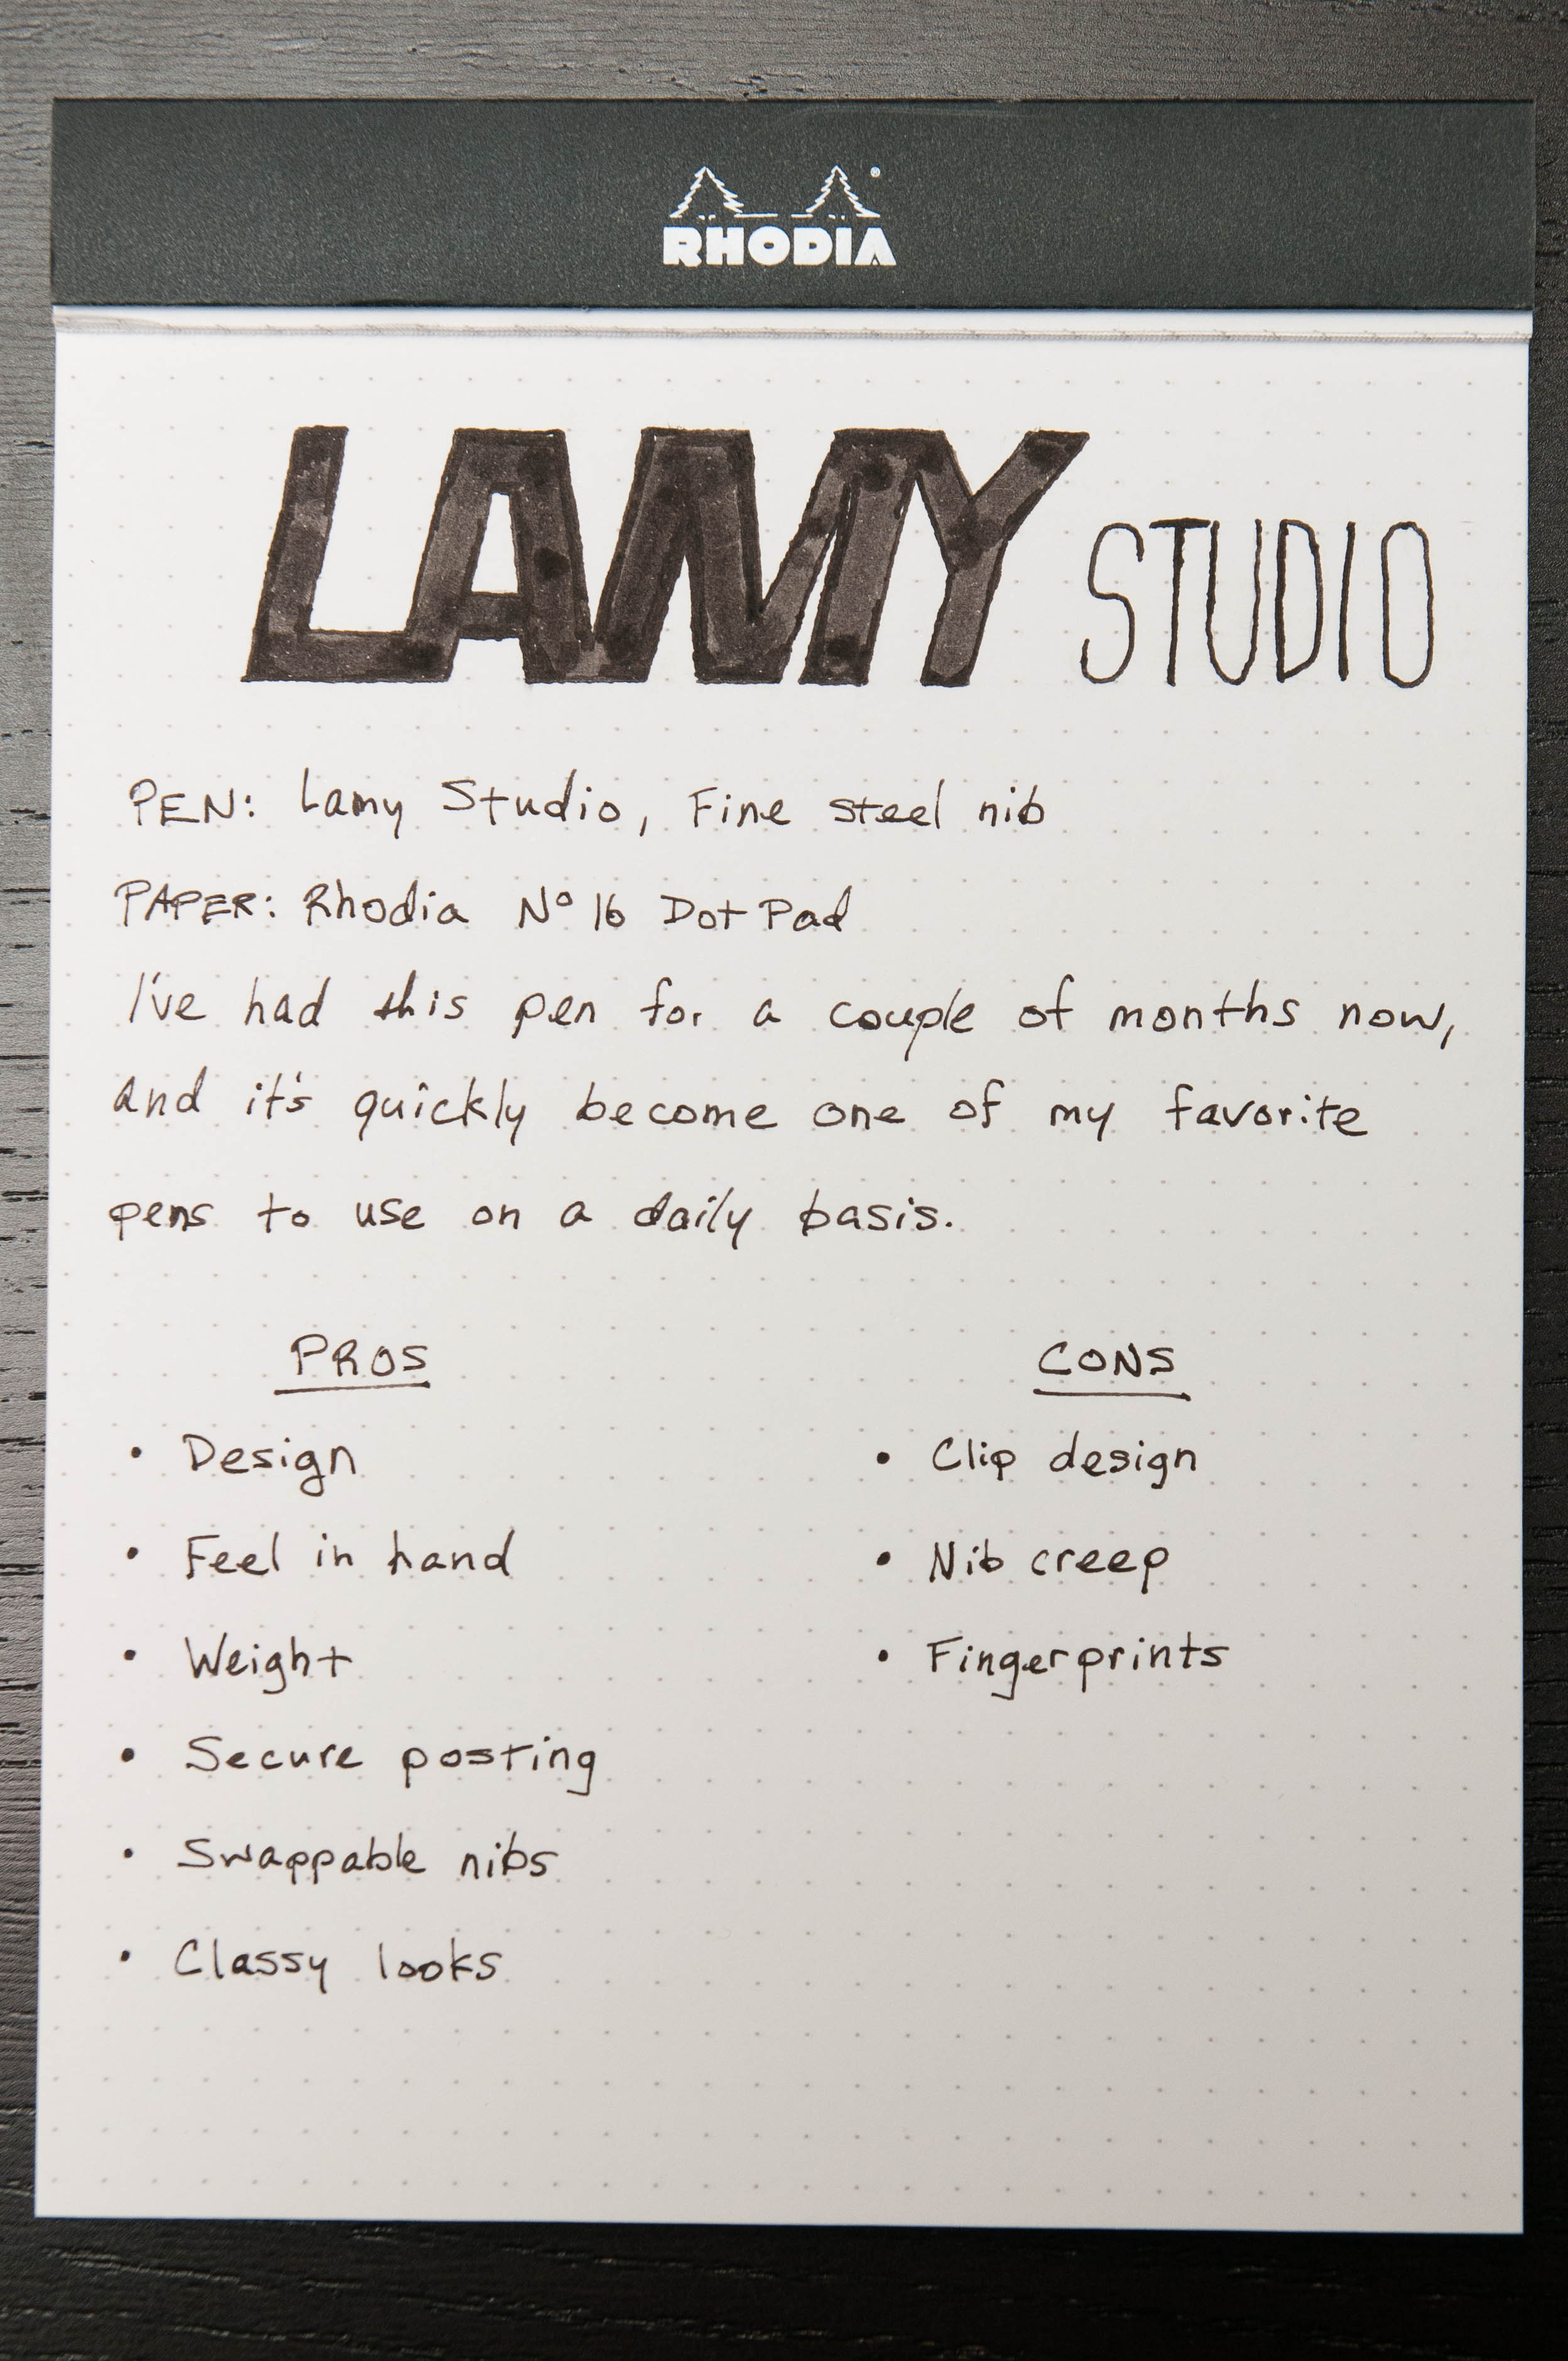 RHODIA
LAMY STUDIO
PEN: Lamy Studio, Fine steel nib
PAPER: Rhodia Nº 16 Dot Pad
I've had this pen for a couple of months now,
and it's quickly become one of my favorite
pens to use on a daily basis.
PROS
• Design
• Feel in hand
• Weight
• Secure posting
• Swappable nibs
• Classy looks
CONS
• Clip design
• Nib creep
• Fingerprints